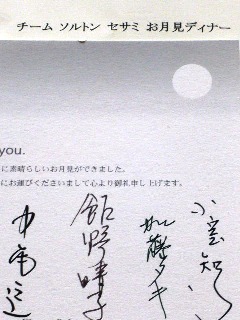 チーム ソルトン セサミ お月見ディナー
you.
に素晴らしいお月見ができました。
にお運びくださいまして心より御礼申し上げます。
小室 知
加藤タキ
飯野晴子